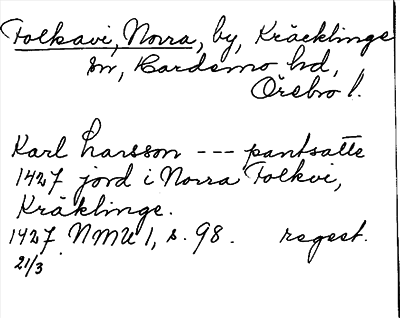 Folkavi, Norra, by, Kräcklinge
sn, Hardemo hd,
Örebro l.
Karl Larsson --- pantsatte
1427 jord i Norra Folkvi,
Kräklinge.
1427 NMU 1, s. 98. regest.
21/3